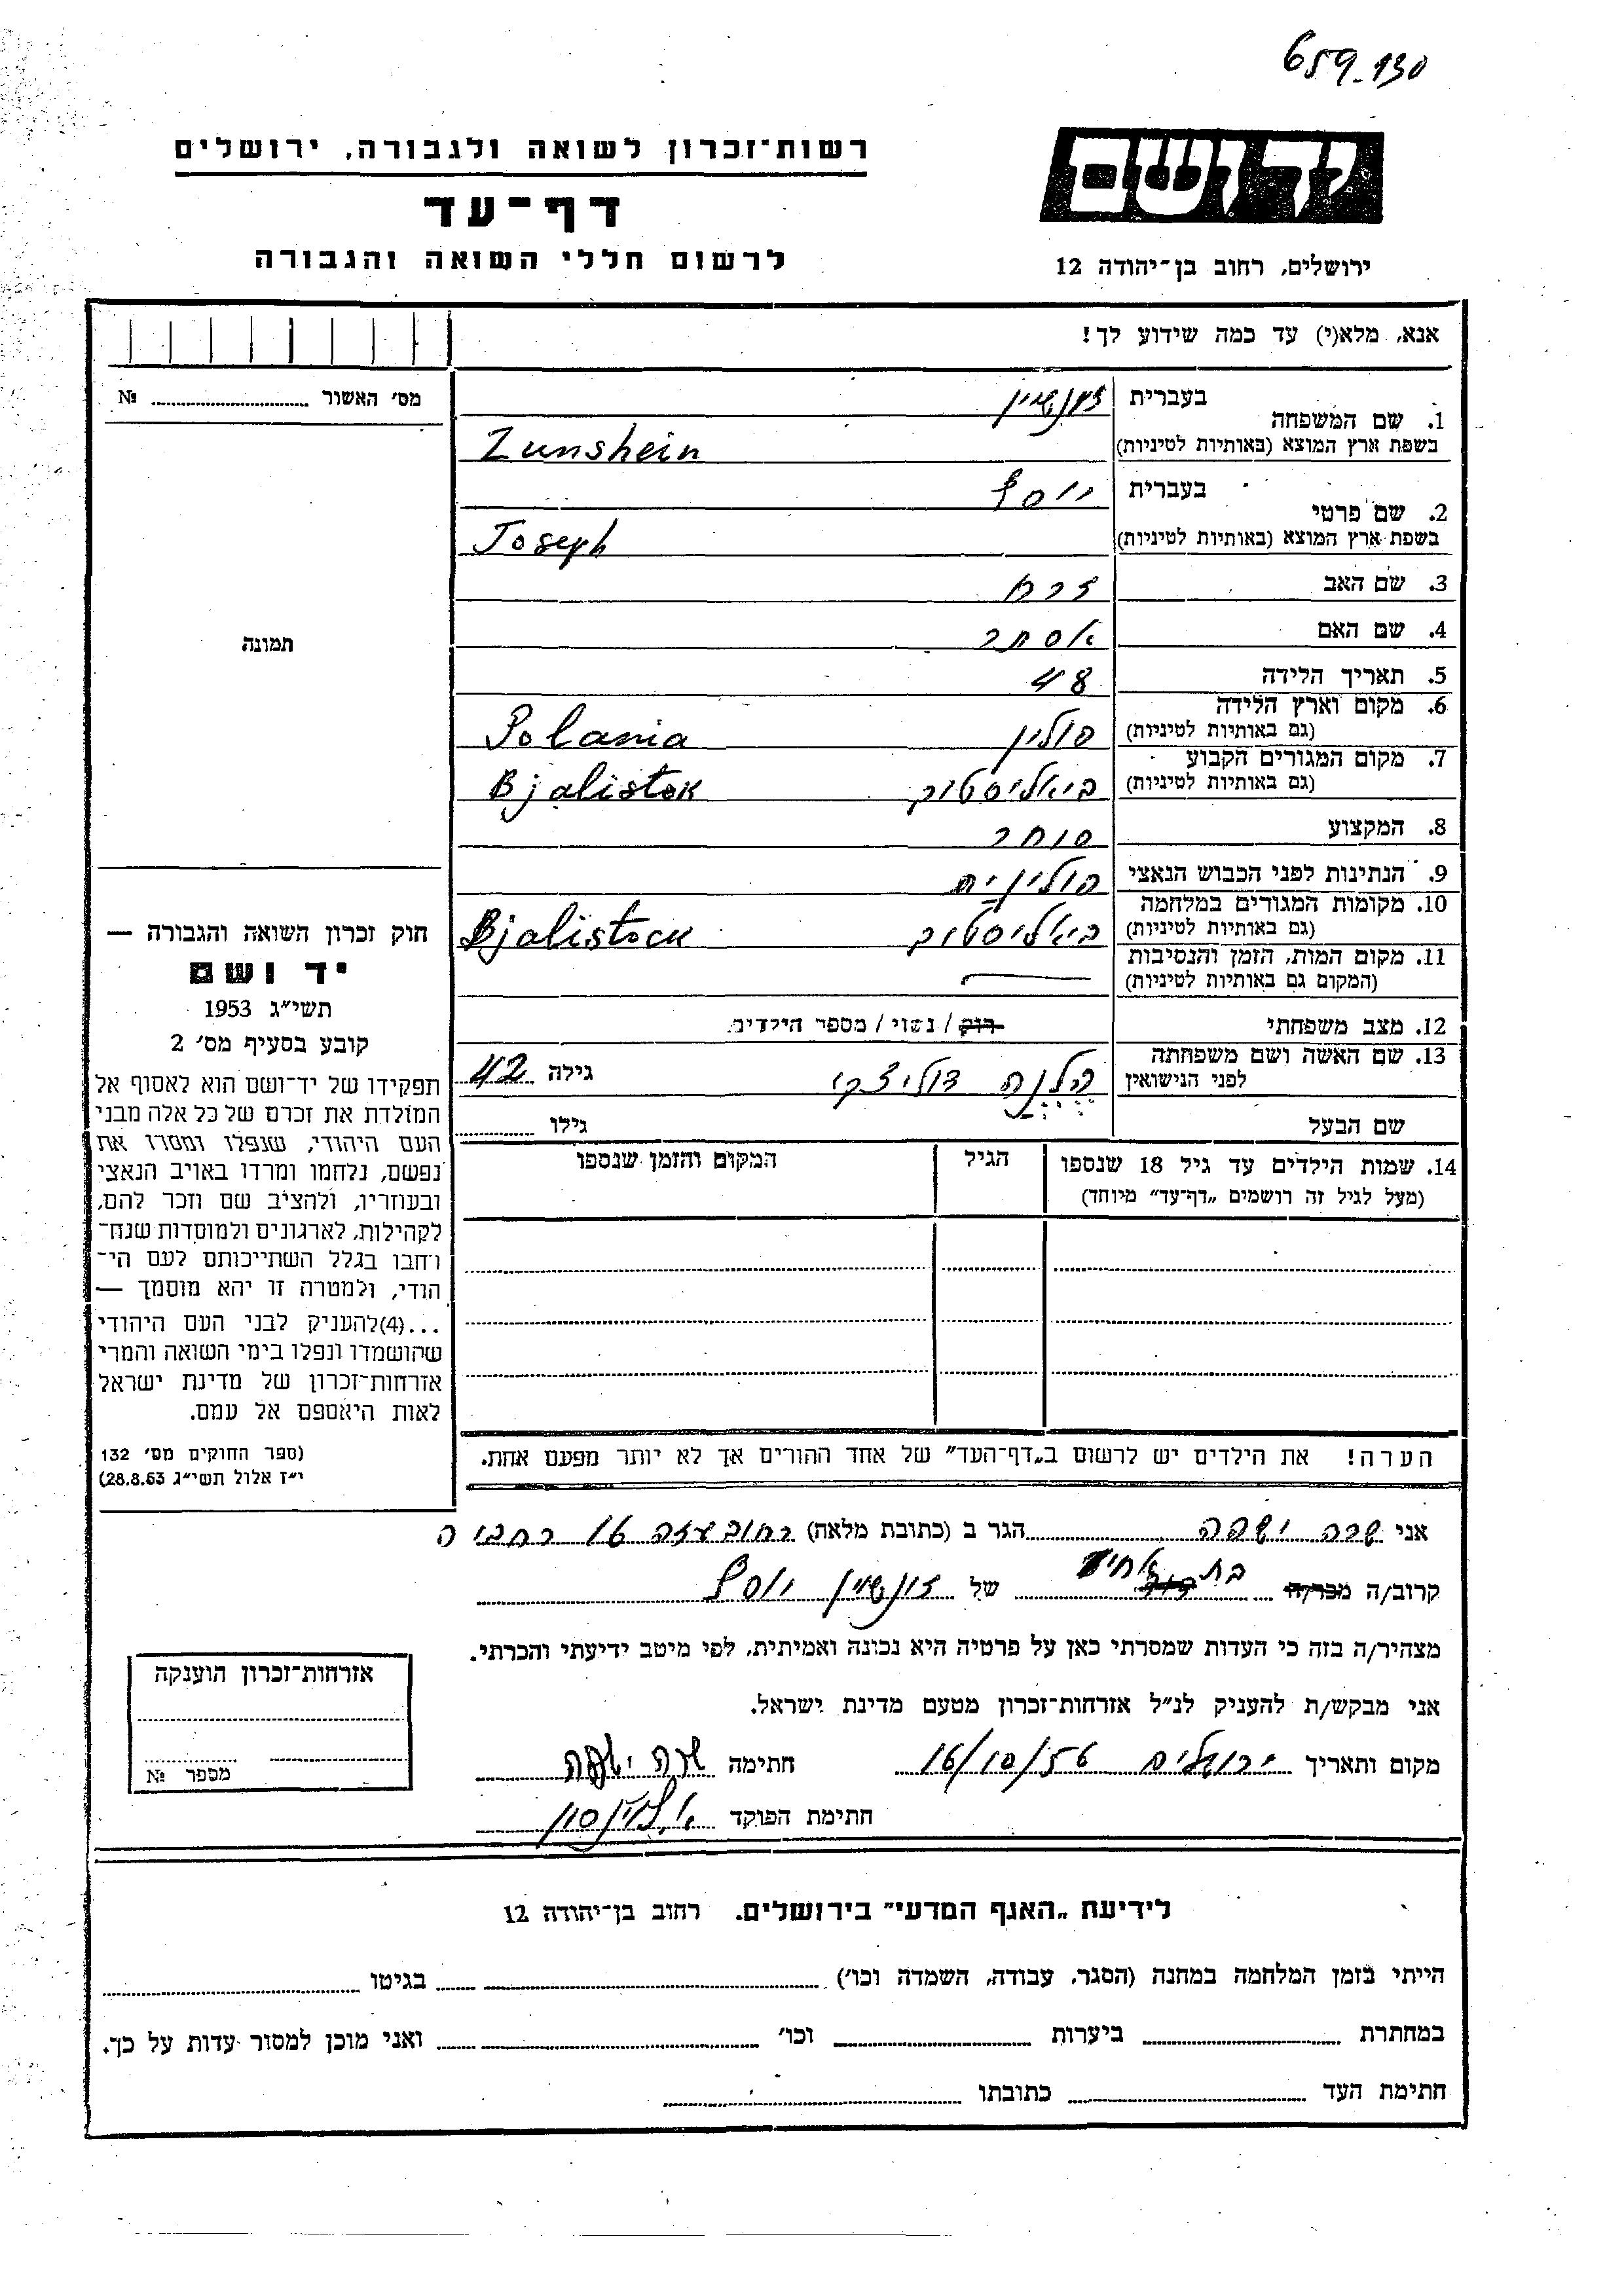 659-130
רשות־זכרון לשואה ולגבורה, ירושלים
יד ושם
דף-עד
לרשום חללי השואה והגבורה
ירושלים, רחוב בן־יהודה 12
אנא, מלא(י) עד כמה שידוע לך!
מס' האשור № 
1. שם המשפחה בעברית זונשיין
בשפת ארץ המוצא (באותיות לטיניות) Zunshein
2. שם פרטי בעברית יוסף
בשפת ארץ המוצא (באותיות לטיניות) Joseph
3. שם האב זרח
4. שם האם אסתר
תמונה
5. תאריך הלידה 48
6. מקום וארץ הלידה
(גם באותיות לטיניות) פולין Polania
7. מקום המגורים הקבוע
(גם באותיות לטיניות) ביאליסטוק Bjalistok
8. המקצוע סוחר
9. הנתינות לפני הכבוש הנאצי פולינית
10. מקומות המגורים במלחמה
(גם באותיות לטיניות) ביאליסטוק Bjalistock
11. מקום המות, הזמן והנסיבות
(המקום גם באותיות לטיניות)
12. מצב משפחתי רוק / נשוי / מספר הילדים
13. שם האשה ושם משפחתה
לפני הנישואין הלנה גילה 42
שם הבעל גילו
14. שמות הילדים עד גיל 18 שנספו הגיל המקום והזמן שנספו
(מעל לגיל זה רושמים „דף־עד" מיוחד)
הערה! את הילדים יש לרשום ב„דף־העד" של אחד ההורים אך לא יותר מפעם אחת.
חוק זכרון השואה והגבורה —
יד ושם
תשי"ג 1953
קובע בסעיף מס' 2
תפקידו של יד־ושם הוא לאסוף אל
המולדת את זכרם של כל אלה מבני
העם היהודי, שנפלו ומסרו את
נפשם, נלחמו ומרדו באויב הנאצי
ובעוזריו, ולהציב שם וזכר להם,
לקהילות, לארגונים ולמוסדות שנח־
רחבו בגלל השתייכותם לעם הי־
הודי, ולמטרה זו יהא מוסמך —
...(4)להעניק לבני העם היהודי
שהושמדו ונפלו בימי השואה והמרי
אזרחות־זכרון של מדינת ישראל
לאות היאספם אל עמם.
(ספר החוקים מס' 132
י"ז אלול תשי"ג 28.8.53)
אני שרה יפה הגר ב (כתובת מלאה) רחוב עזה 16 רחביה
קרוב/ה מכר/ה בת אחיו של זונשיין יוסף
מצהיר/ה בזה כי העדות שמסרתי כאן על פרטיה היא נכונה ואמיתית, לפי מיטב ידיעתי והכרתי.
אני מבקש/ת להעניק לנ"ל אזרחות־זכרון מטעם מדינת ישראל.
מקום ותאריך ירושלים 16/10/56 חתימה שרה יפה
חתימת הפוקד
אזרחות־זכרון הוענקה
מספר №
לידיעת „האגף המדעי" בירושלים. רחוב בן־יהודה 12
הייתי בזמן המלחמה במחנה (הסגר, עבודה, השמדה וכו') בגיטו
במחתרת ביערות וכו' ואני מוכן למסור עדות על כך.
חתימת העד כתובתו